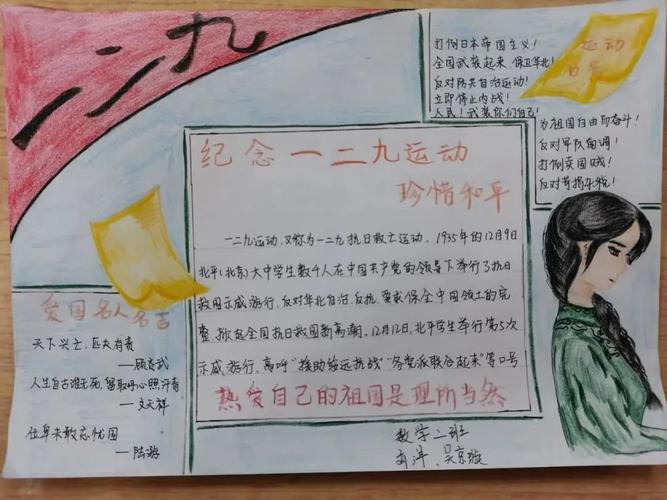 一二九
打倒日本帝国主义！
全国武装起来，保卫华北！
反对防共自治运动！
立即停止内战！
人民！武装你们自己！
运动
口号
为祖国自由而奋斗！
反对军队南调！
打倒卖国贼！
反对苛捐杂税！
纪念一二九运动
珍惜和平
一二九运动，又称为一二九抗日救亡运动，1935年的12月9日
北平(北京)大中学生数千人在中国共产党的领导下举行了抗日
救国示威游行，反对华北自治，反抗，要求保全中国领土的完
整，掀起全国抗日救国新高潮。12月12日，北平学生举行第5次
示威游行，高呼"援助绥远抗战""各党派联合起来"等口号
热爱自己的祖国是理所当然
爱国名人名言
天下兴亡，匹夫有责
——顾炎武
人生自古谁无死，留取丹心照汗青
——文天祥
位卑未敢忘忧国
——陆游
数学二班